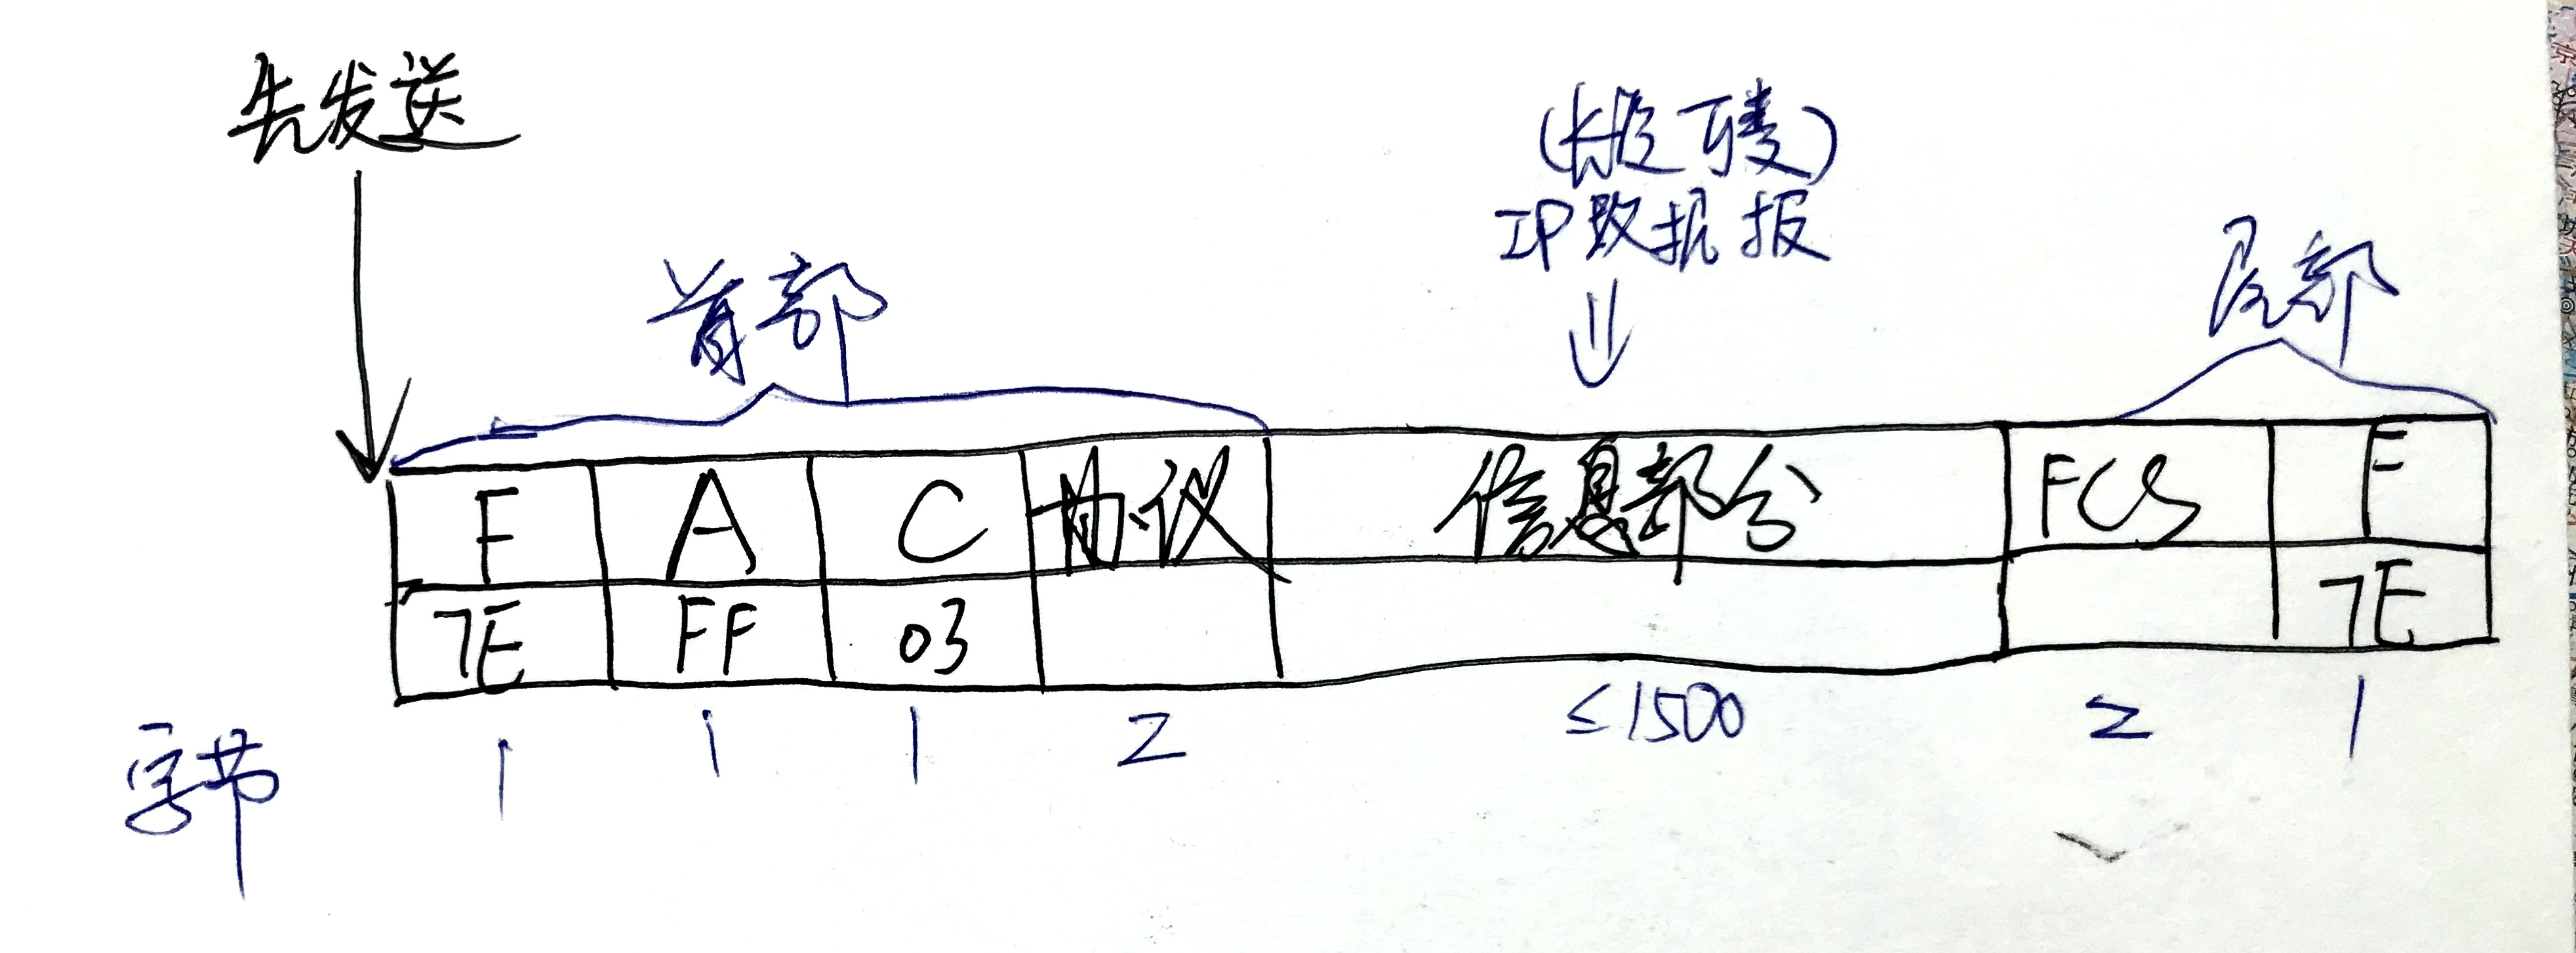 先发送
(长度可变)
IP数据报
首部
尾部
F A C 协议 信息部分 FCS F
7E FF 03 7E
字节 1 1 1 2 ≤1500 2 1